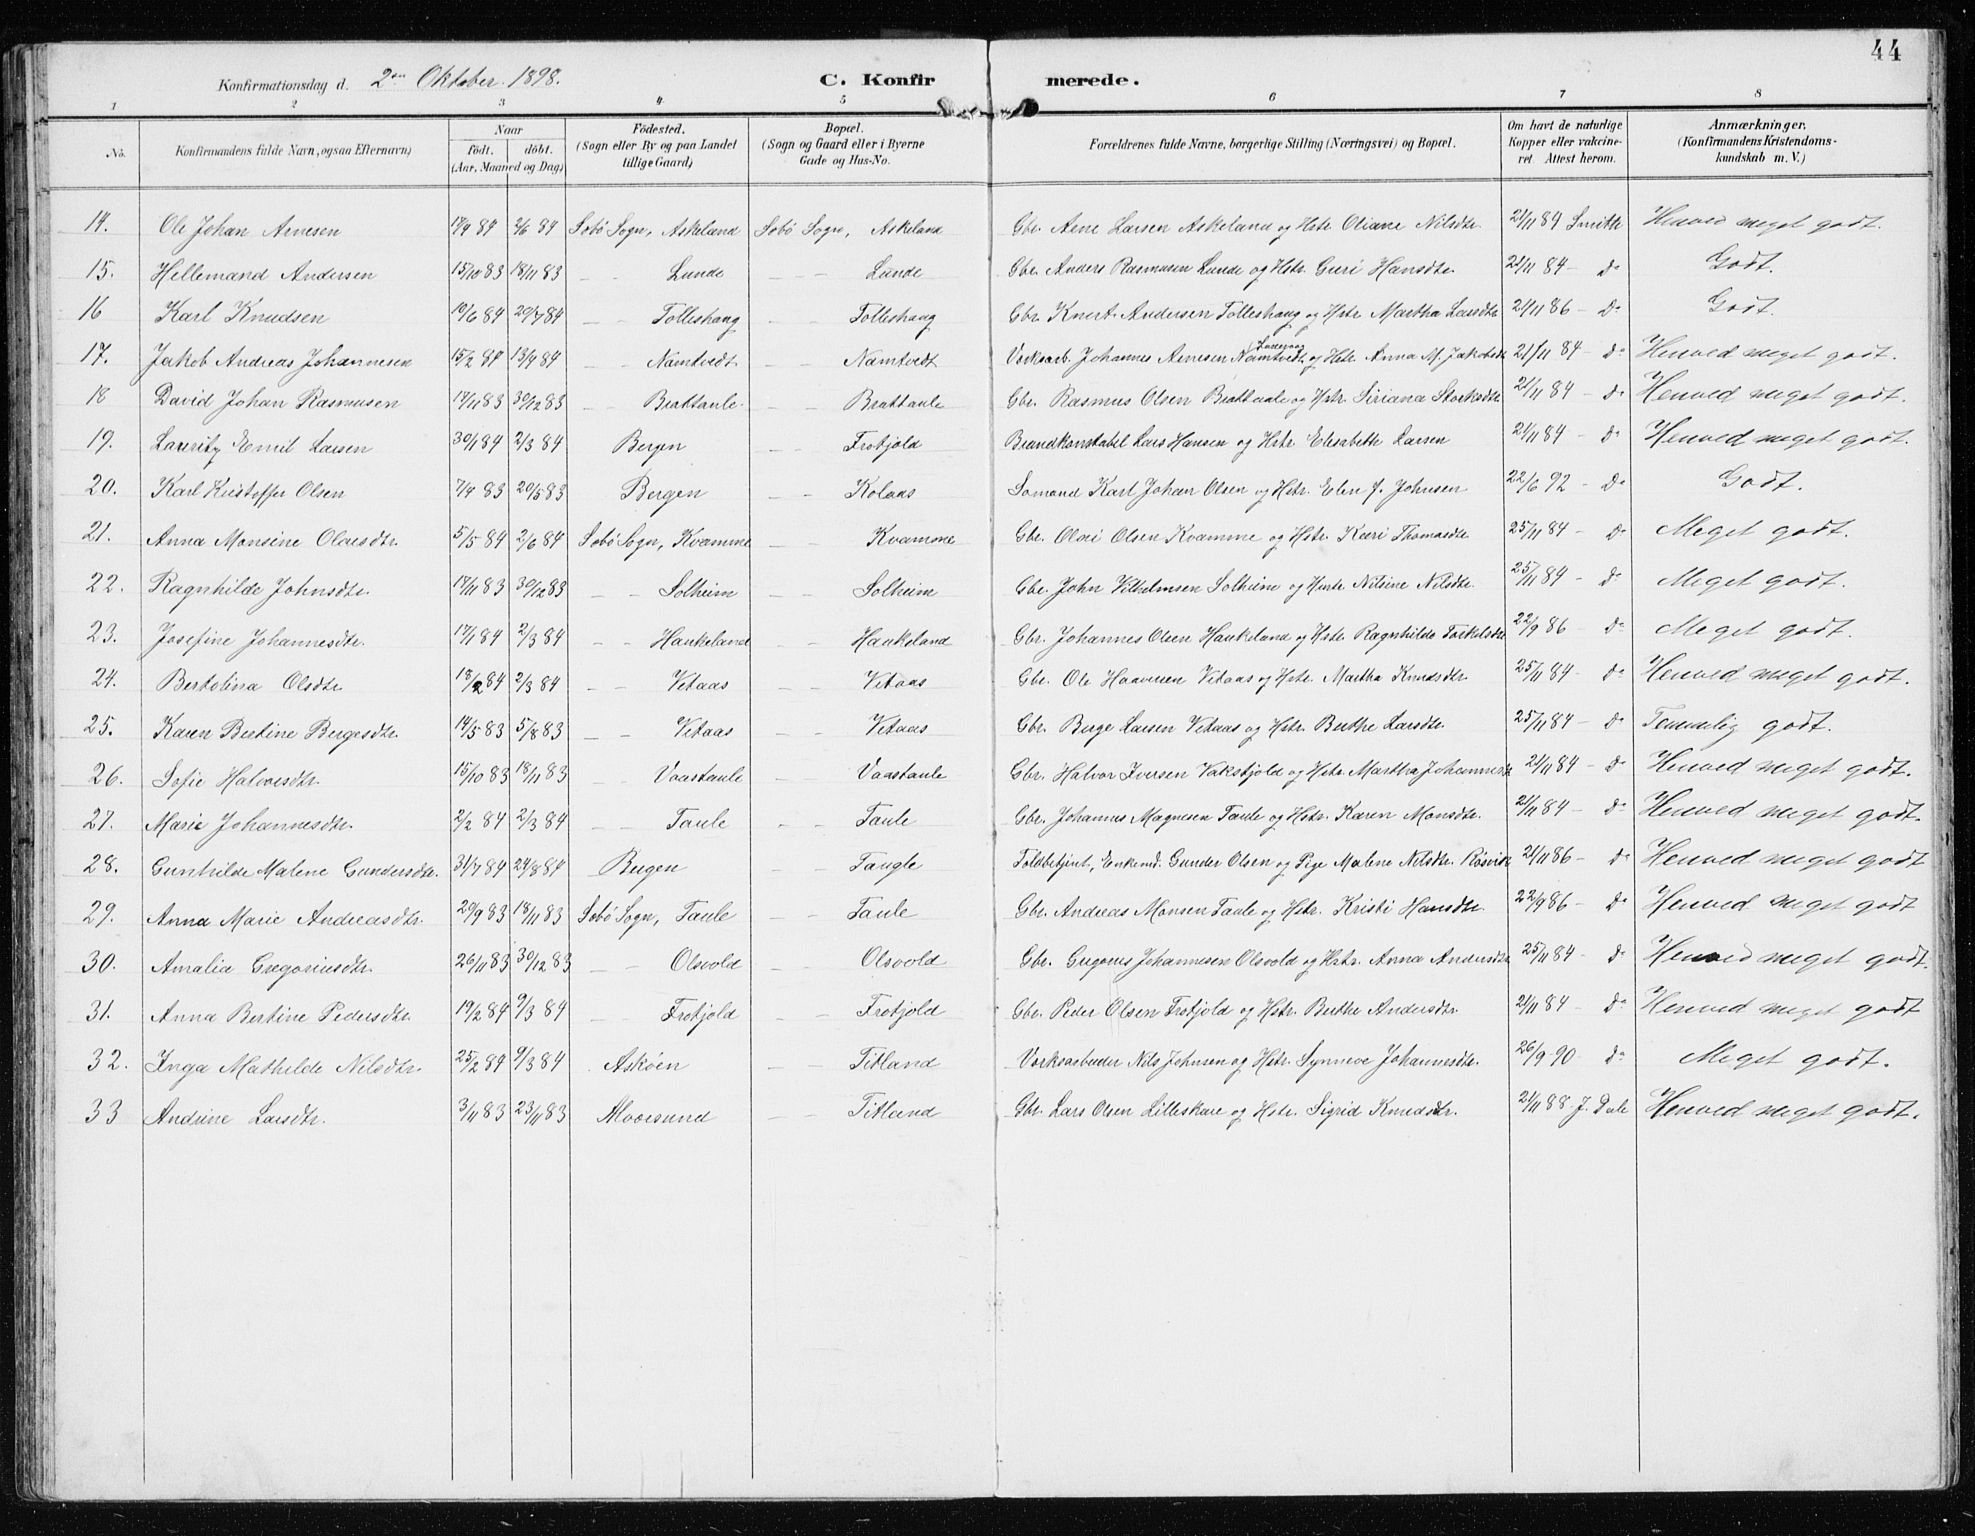 44
Konfirmationsdag d. 2den Oktober 1898. C. Konfirmerede.
1 2 3 4 5 6 7 8
No. Konfirmandens fulde Navn, ogsaa Efternavn) Naar födt. döbt. (Aar, Maaned og Dag) Födested. (Sogn eller By og paa Landet tillige Gaard) Bopæl. (Sogn og Gaard eller i Byerne Gade og Hus-No. Forældrenes fulde Navne, borgerlige Stilling (Næringsvei) og Bopæl. Om havt de naturlige Kopper eller vakcineret. Attest herom. Anmærkninger. (Konfirmandens Kristendomskundskab m. V.)
14. Ole Johan Arnesen 17/4 84 2/6 84 Söbö Sogn, Askeland Söbö Sogn, Askeland Gbr. Arne Larsen Askeland og Hstr Oliane Nilsdtr 21/11 84 Smith Henved meget godt.
15. Hellemand Andersen 15/10 83 18/11 83 — Lunde — — Lunde Gbr. Anders Rasmusen Lunde og Hstr. Guri Hansdtr. 21/11 84 — Do Godt.
16 Karl Knudsen 19/6 84 20/7 84 — — Tolleshaug — — Tolleshaug Gbr. Knut Andersen Tolleshaug og Hstr Martha Larsdtr 21/11 86 — Do Godt.
17. Jakob Andreas Johannesen 15/2 84 13/4 84 — — Namtvedt — — Namtvedt Verksarb. Johannes Arnesen Namtvedt og Hstr. Anna M. Jakobsdtr 21/11 84 — Do Henved meget godt.
18 David Johan Rasmusen 17/11 83 30/12 83 — — Brattaule. — — Brattaule Gbr. Rasmus Olsen Brattaule og Hstr. Siriana Storksdtr 21/11 84 — Do Henved meget godt.
19. Lauritz Emil Larsen 30/1 84 2/3 84 Bergen — — Frotjold Brandkonstabel Lars Hansen og Hstr. Elisabeth Larsen 21/11 84 — Do Henved meget godt.
20. Karl Kristoffer Olsen 7/4 83 20/5 83 Bergen — — Kolaas Sømand Karl Johan Olsen og Hstr. Elen J. Johnsen 22/6 92 — Do Godt.
21. Anna Monsine Olaisdtr. 5/5 84 2/6 84 Söbö Sogn, Kvamme — — Kvamme Gbr. Olai Olsen Kvamme og Hstr. Kari Thomasdtr 25/11 84 — Do Meget godt.
22. Ragnhilde Johnsdtr. 17/11 83 30/12 83 — — Solheim — — Solheim Gbr. John Vilhelmsen Solheim og Hustr. Nilsine Nilsdtr 25/11 84 — Do Meget godt.
23. Josefine Johannesdtr. 17/1 84 2/3 84 — — Haukeland — — Haukeland Gbr. Johannes Olsen Haukeland og Hstr Ragnhilde Torkelsdtr 22/9 86 — Do Meget godt.
24. Bertolina Olsdtr 18/2 84 2/3 84 — — Vetaas — — Vetaas Gbr. Ole Haavesen Vetaas og Hstr. Martha Knudsdtr. 25/11 84 — Do Henved meget godt.
25. Karen Bertine Bergesdtr. 14/5 83 5/8 83 — — Vetaas — — Vetaas Gbr. Berge Larsen Vetaas og Hstr. Berthe Larsdtr. 25/11 84 — Do Temmelig godt.
26. Sofie Halvorsdtr. 15/10 83 18/11 83 — — Vaastaule — — Vaastaule Gbr. Halvor Iversen Vakskjold og Hstr Martha Johannesdtr 21/11 84 — Do Henved meget godt.
27. Marie Johannesdtr. 2/2 84 2/3 84 — — Taule — — Taule Gbr. Johannes Magnesen Taule og Hstr. Karen Monsdtr. 21/11 84 — Do Henved meget godt.
28. Gunhilde Malene Gundersdtr. 31/7 84 24/8 84 Bergen — — Taugle Toldbetjent, Enkemd. Gunder Olsen og Pige Malene Nilsdtr. Rösvik 21/11 86 — Do Henved meget godt
29. Anna Marie Andreasdtr. 20/9 83 18/11 83 Söbö Sogn, Taule — Taule Gbr. Andreas Monsen Taule og Hstr. Kristi Hansdtr. 22/9 86 — Do Henved meget godt
30. Amalia Gregoriusdtr. 26/11 83 30/12 83 — — Olsvold — — Olsvold Gbr. Gregorius Johannesen Olsvold og Hstr. Anna Andersdtr 25/11 84 — Do Henved meget godt.
31. Anna Bertine Pedersdtr. 19/2 84 9/3 84 — Frotjold — — Frotjold Gbr. Peder Olsen Frotjold og Hstr. Berthe Andersdtr. 21/11 84 — Do Henved meget godt
32. Inga Mathilde Nilsdtr. 25/2 84 9/3 84 Asköen — — Titland Verksarbeider Nils Johnsen og Hstr. Synneve Johannesdtr. 26/9 90 Do Meget godt.
33 Andrine Larsdtr. 3/11 83 23/11 83 Alversund — — Titland Gbr. Lars Olsen Lilleskare og Hstr. Sigrid Knudsdtr. 21/11 88 J. Dale Henved meget godt.